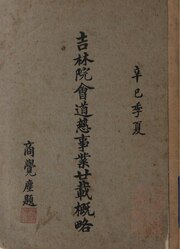 辛巳季夏
吉林院會道慈事業廿載概略
商覺虛題